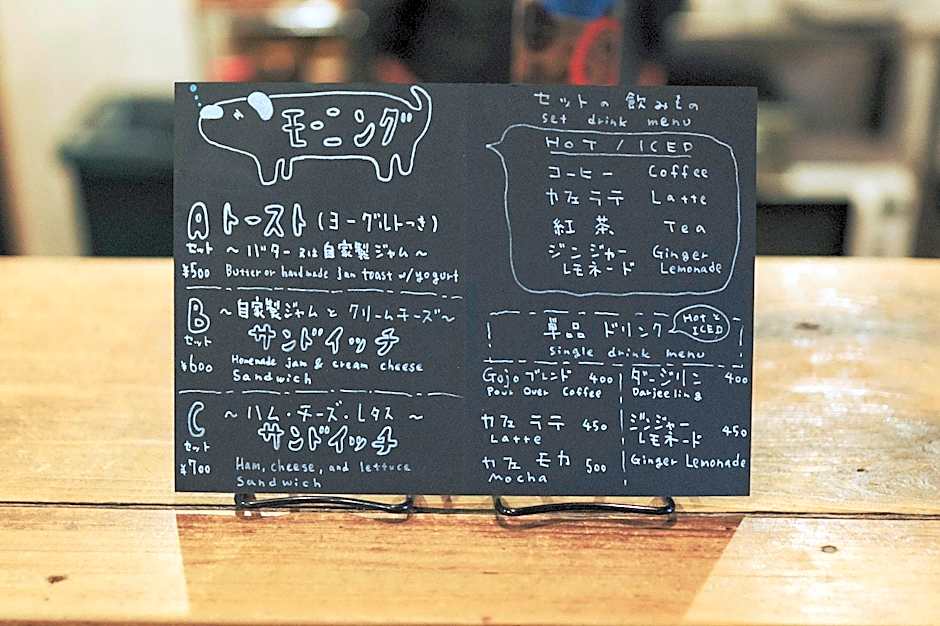 モーニング
A トースト(ヨーグルトつき)
セット ～バター又は自家製ジャム～
¥500 Butter or handmade jam toast w/yogurt
B ～自家製ジャムとクリームチーズ～
セット サンドイッチ
¥600 Homemade jam & cream cheese
Sandwich
C ～ハム・チーズ・レタス～
セット サンドイッチ
¥700 Ham, cheese, and lettuce
Sandwich
セットの飲みもの
set drink menu
HOT / ICED
コーヒー Coffee
カフェラテ Latte
紅茶 Tea
ジンジャー Ginger
レモネード Lemonade
単品 ドリンク HOT と
ICED
single drink menu
Gojo ブレンド 400
Pour Over Coffee
カフェ ラテ 450
Latte
カフェ モカ 500
Mocha
ダージリン 400
Darjeeling
ジンジャー
レモネード 450
Ginger Lemonade